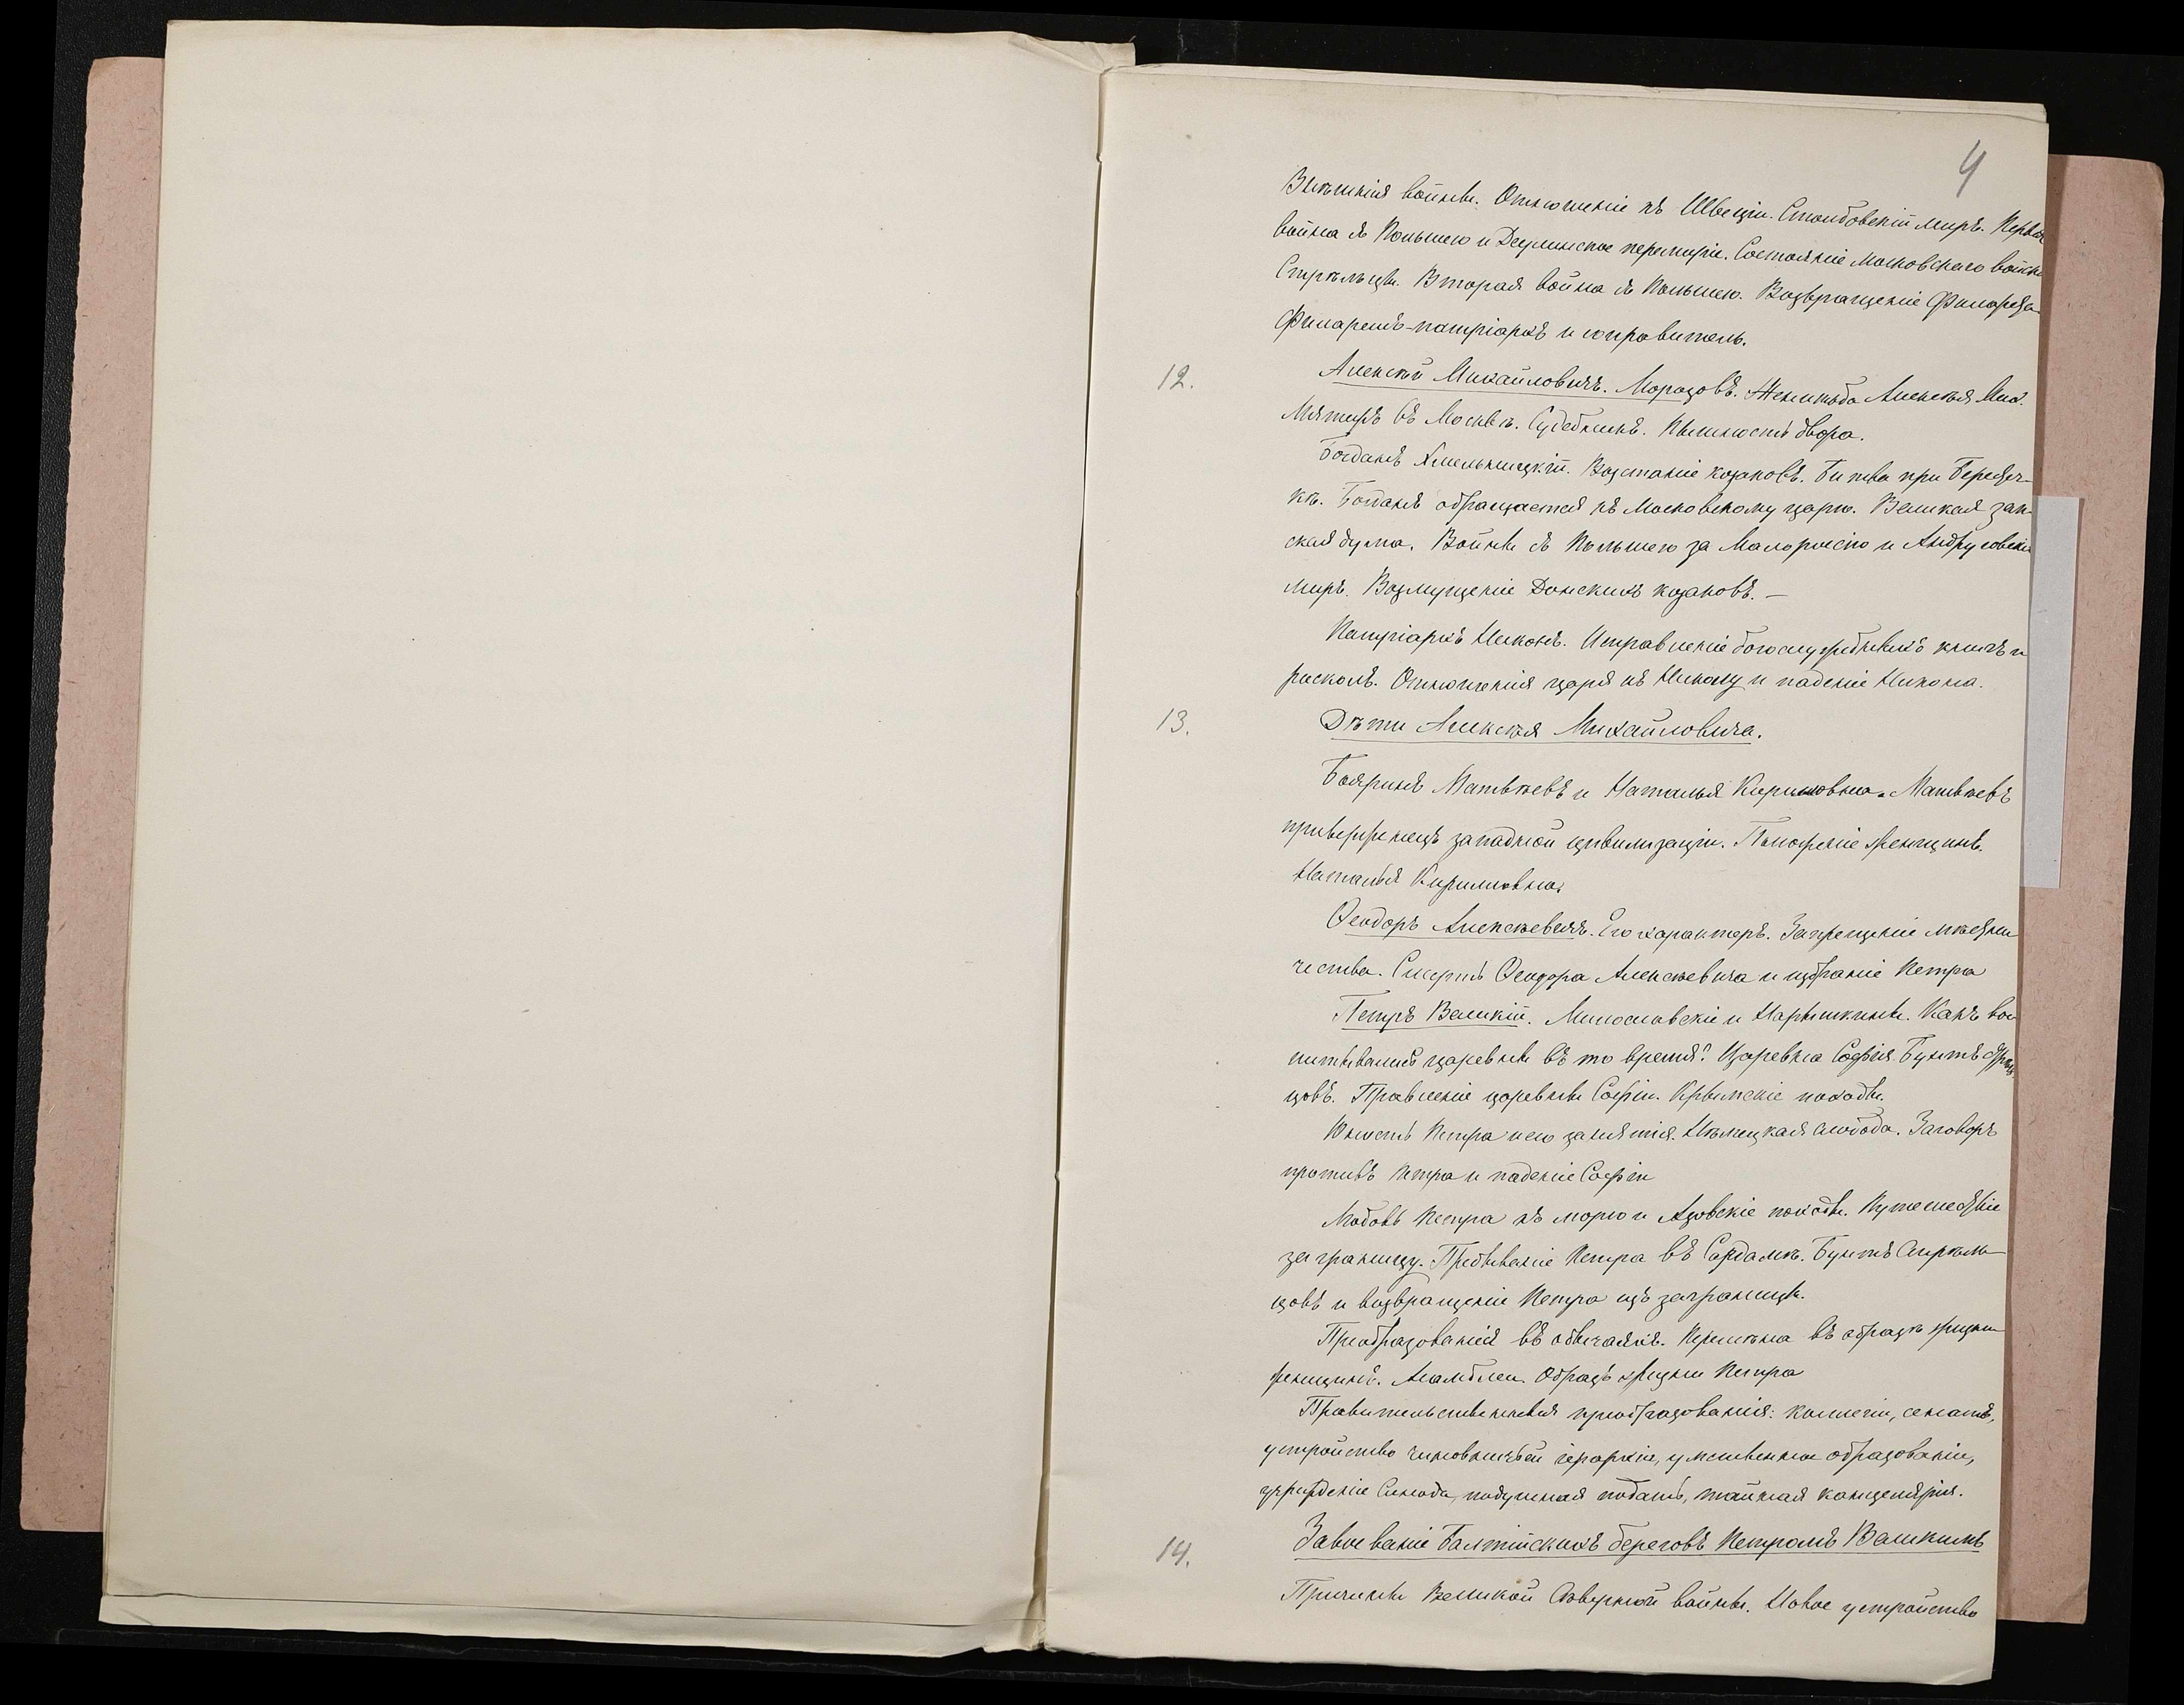 4
Внѣшнія войны. Отношеніе къ Швеціи. Столбовскій миръ. Первая
война съ Польшею и Деулинское перемиріе. Состояніе Московскаго войска
Стрѣльцы. Вторая война съ Польшею. Возвращеніе Филарета
Филаретъ-патріархъ и соправитель.
12. Алексѣй Михайловичъ. Морозовъ. Женитьба Алексѣя Мих.
Мятежъ въ Москвѣ. Судебникъ. Пышность двора.
Богданъ Хмельницкій. Возстаніе козаковъ. Битва при Берестеч-
кѣ. Богданъ обращается къ Московскому царю. Великая зем-
ская дума. Войны съ Польшею за Малороссію и Андрусовскій
миръ. Возмущеніе Донскихъ козаковъ. —
Патріархъ Никонъ. Исправленіе богослужебныхъ книгъ и
расколъ. Отношенія царя къ Никону и паденіе Никона.
13. Дѣти Алексѣя Михайловича.
Бояринъ Матвѣевъ и Наталья Кириловна. Матвѣевъ
приверженецъ западной цивилизаціи. Положеніе женщинъ.
Наталья Кириловна.
Ѳеодоръ Алексѣевичъ. Его характеръ. Запрещеніе мѣстни
чества. Смерть Ѳеодора Алексѣевича и избраніе Петра
Петръ Великій. Милославскіе и Нарышкины. Какъ вос
питывались царевны въ то время? Царевна Софія. Бунтъ стрѣль
цовъ. Правленіе царевны Софіи. Крымскіе походы.
Юность Петра и его занятія. Нѣмецкая слобода. Заговоръ
противъ Петра и паденіе Софіи
Любовь Петра къ морю и Азовскіе походы. Путешествіе
заграницу. Пребываніе Петра въ Сардамѣ. Бунтъ Стрѣль
цовъ и возвращеніе Петра изъ заграницы.
Преобразованія въ обычаяхъ. Перемѣна въ образѣ жизни
женщинъ. Ассамблеи. Образъ жизни Петра
Правительственныя преобразованія: коллегіи, сенатъ,
устройство чиновничьей іерархіи, умственное образованіе,
учрежденіе Синода, подушная подать, тайная канцелярія.
14. Завоеваніе Балтійскихъ береговъ Петромъ Великимъ
Причины Великой Сѣверной войны. Новое устройство